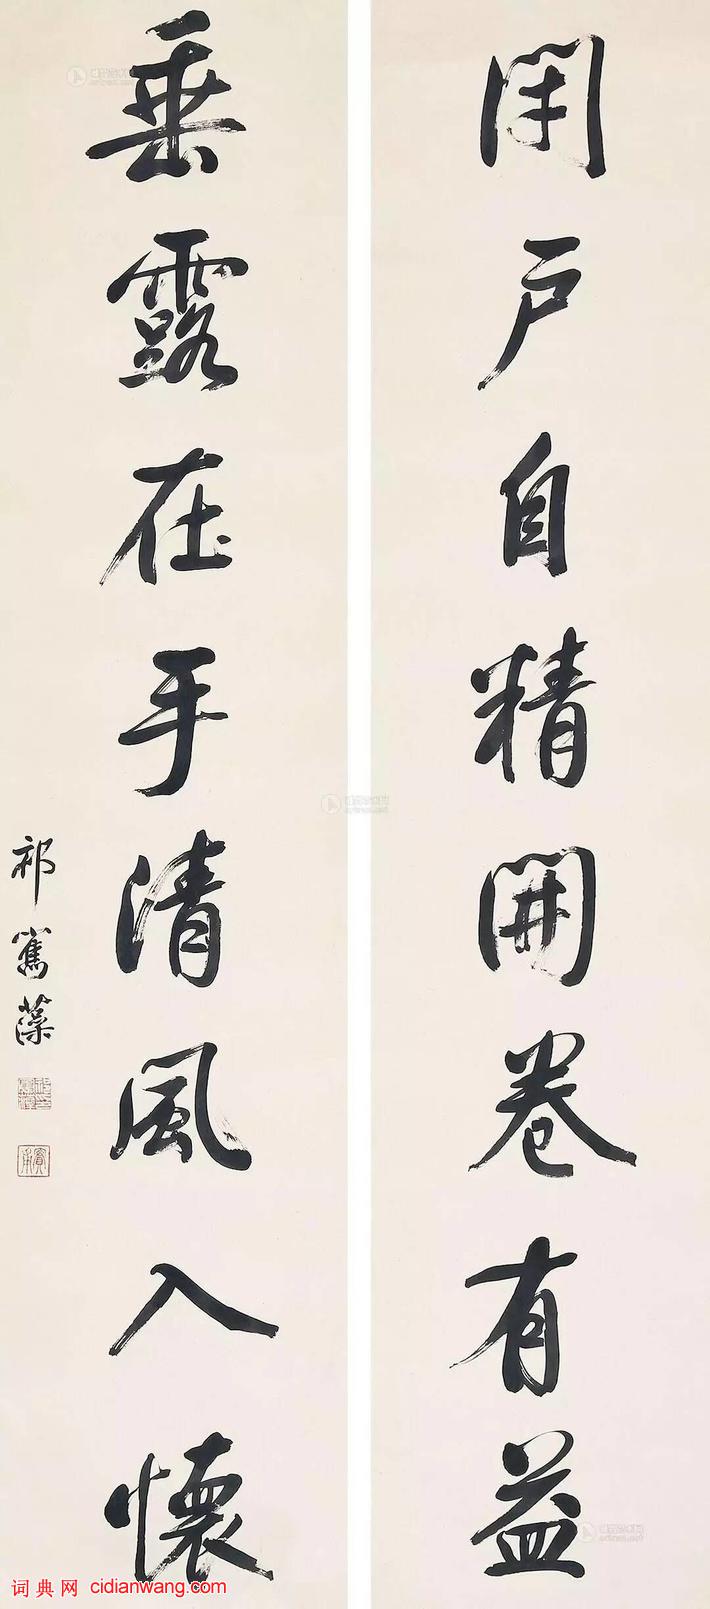 閉戶自精開卷有益
垂露在手清風入懷
祁寯藻
词典网 cidianwang.com